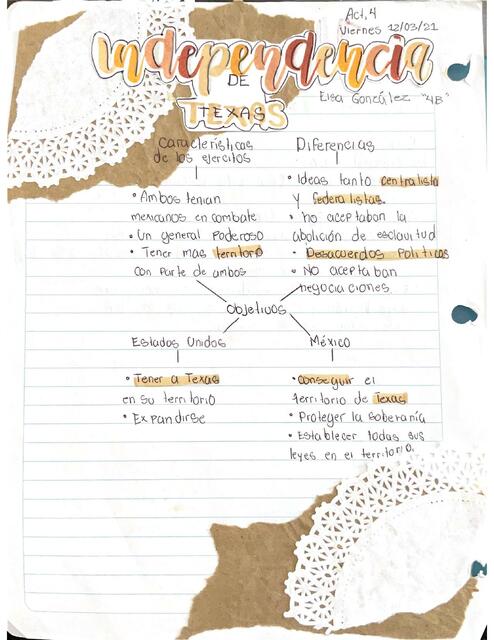 Act. 4
Viernes 12/03/21
Independencia
DE
TEXAS
Elsa González "4B"
Características
de los ejercitos
• Ambos tenian
mexicanos en combate
• Un general Poderoso
• Tener mas territorio
con parte de ambos
Diferencias
• Ideas tanto centralista
y federalistas.
• no aceptaban la
abolición de esclavitud
• Desacuerdos Politicos
• No aceptaban
negociaciones
Objetivos
Estados Unidos
• Tener a Texas
en su territorio
• Expandirse
México
• conseguir el
territorio de Texas
• Proteger la soberanía
• Establecer todas sus
leyes en el territorio.